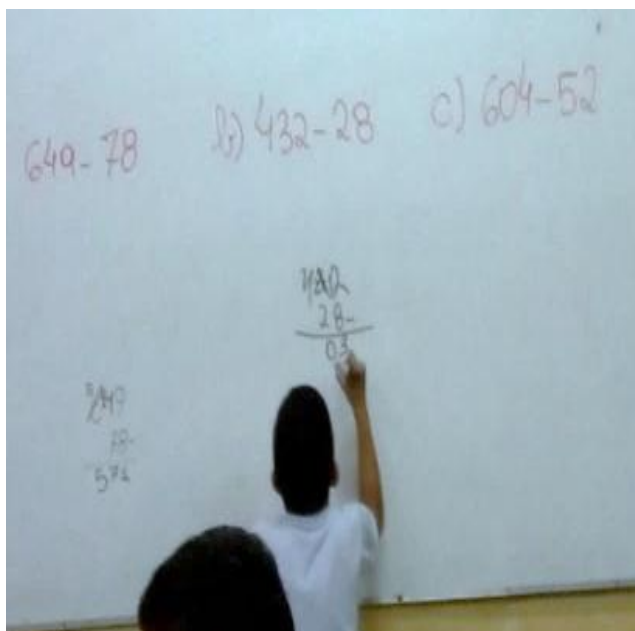 649-78
b) 432-28
c) 604-52
28-
03
49
78-
571